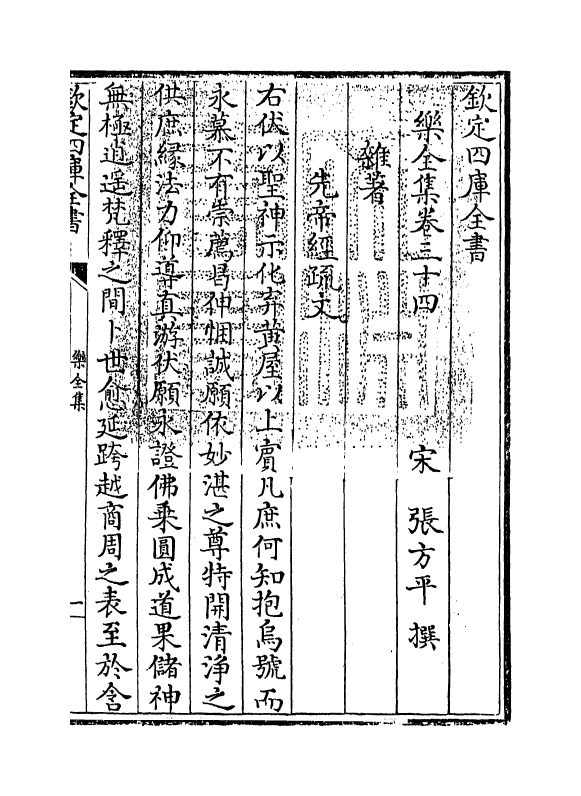 欽定四庫全書
樂全集卷三十四
宋 張方平 撰
雜著
先帝經疏文
右伏以聖神示化弃黄屋以上賓凡庶何知抱烏號而
永慕不有崇薦曷伸悃誠願依妙湛之尊特開清淨之
供庶縁法力仰導真游伏願永證佛乗圓成道果儲神
無極逍遥梵釋之間卜世愈延跨越商周之表至於含
欽定四庫全書
樂全集
一